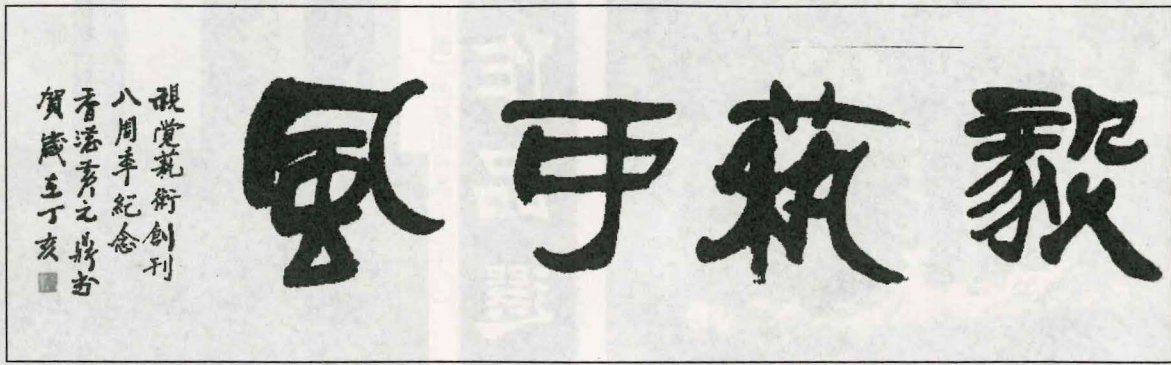 毅藝可風
視覺藝術創刊
八周年紀念
香港黃元鼎書
賀歲在丁亥